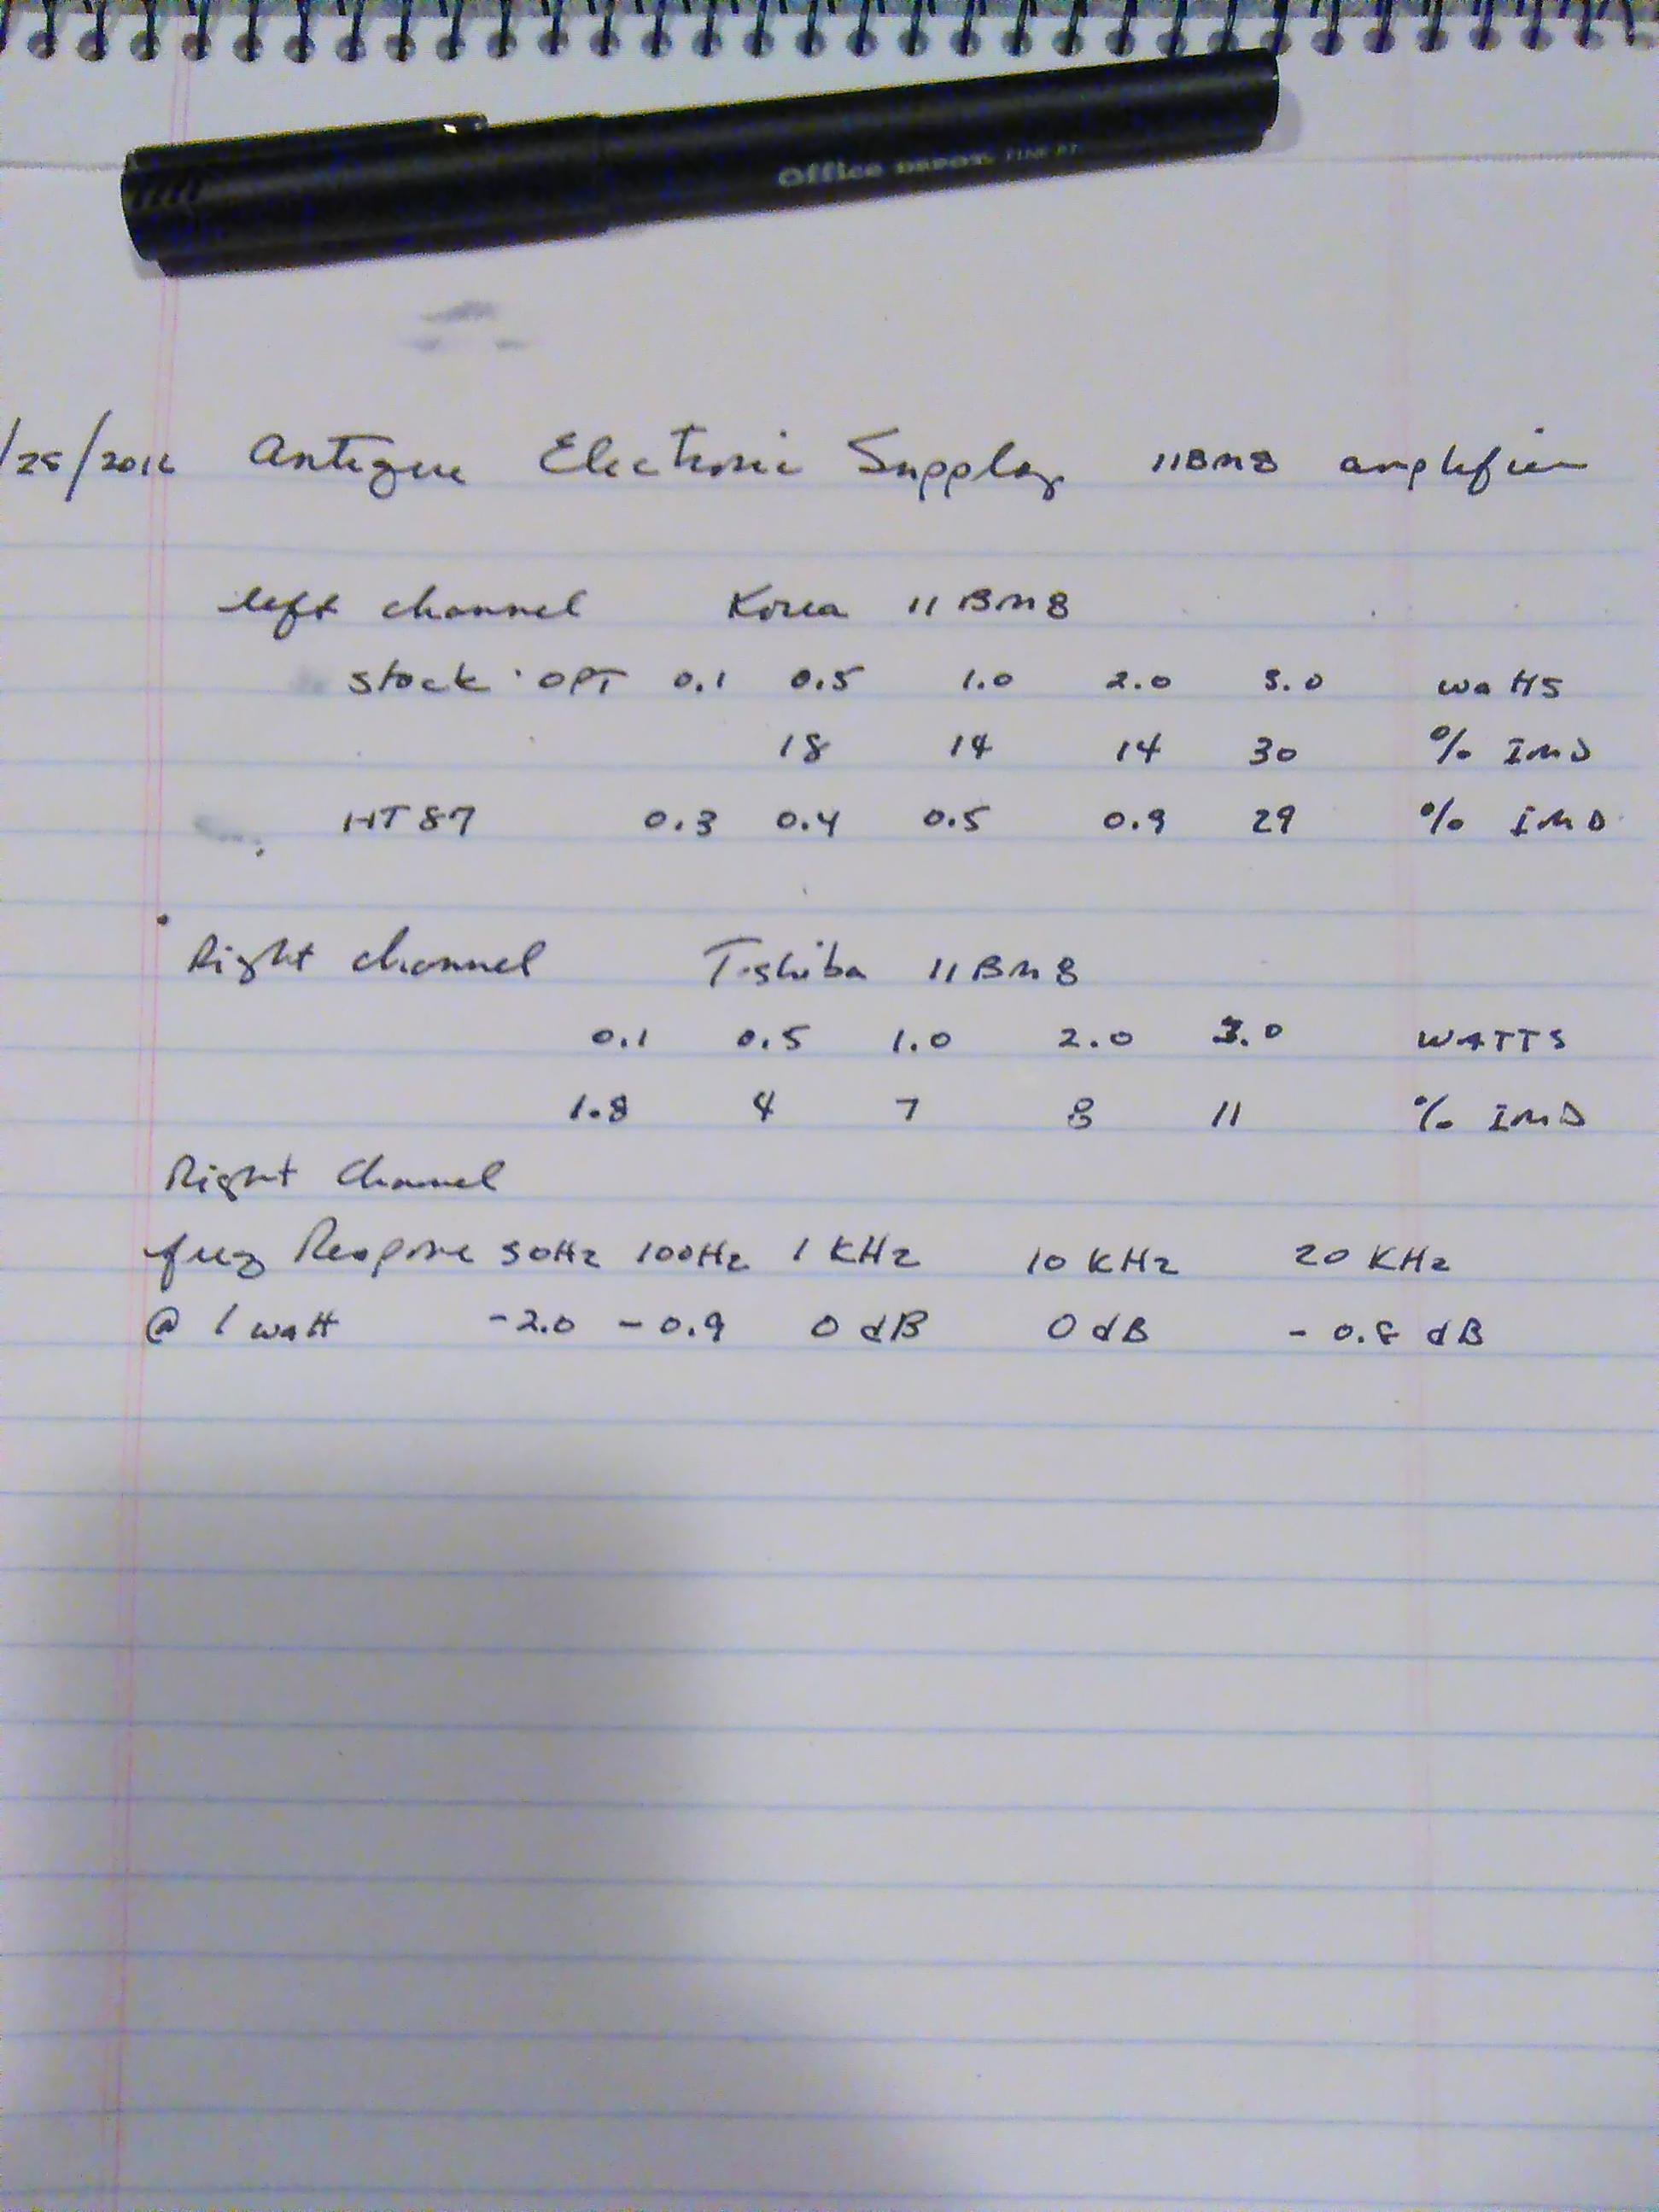 Office DEPOT FINE PT.
/25/2016 Antique Electronic Supply 11BM8 amplifier
left channel Korea 11BM8
stock OPT 0.1 0.5 1.0 2.0 3.0 watts
18 14 14 30 % IMD
HT87 0.3 0.4 0.5 0.9 29 % IMD
Right channel Toshiba 11BM8
0.1 0.5 1.0 2.0 3.0 WATTS
1.8 4 7 8 11 % IMD
Right Channel
freq Response 50Hz 100Hz 1 KHz 10 KHz 20 KHz
@ 1 watt -2.0 -0.9 0 dB 0 dB -0.8 dB